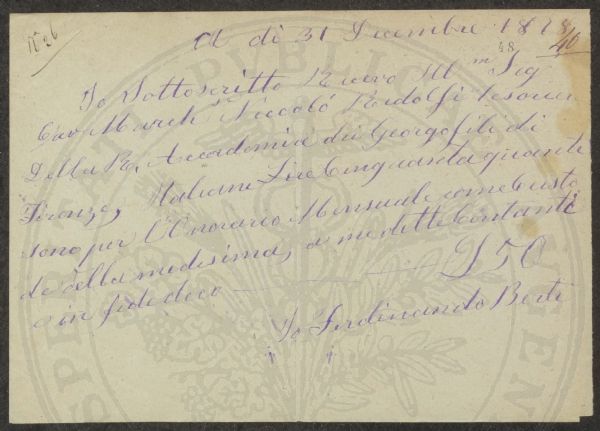 N° 26
A di 31 Decembre 1878
48
40
Io Sottoscritto Ricevo Ill m Sig
Cav March Niccoló Ridolfi Tesorier
Della R. Accademia dei Georgofili di
Firenze, Italiane Lire Cinquanta quante
sono per l'Onorario Mensuale come Custo
de della medesima, a me dette Contanti
e in fede deco L 50
Io Ferdinando Berti